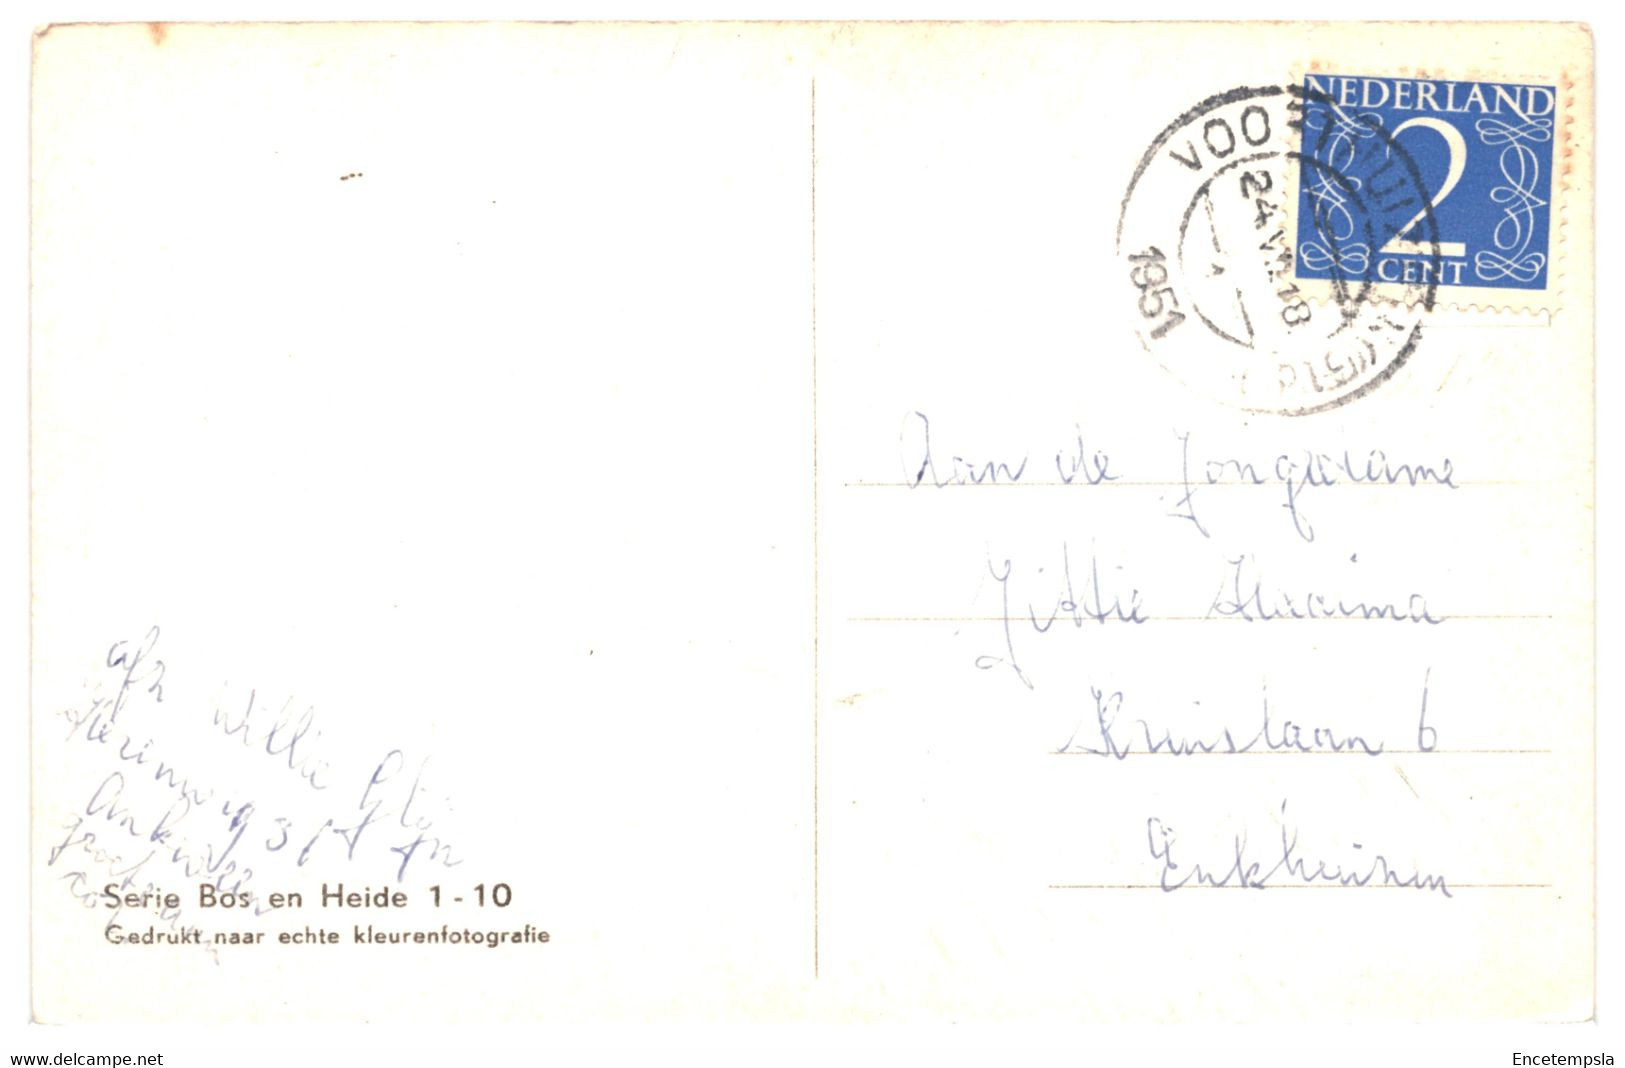 NEDERLAND
2
CENT
VOORTHUIZEN
24 VII 18
1951
Aan de Jongedame
Jittie Haaima
Kruislaan 6
Enkhuizen
afz Willie Glijn
31
groeten
Serie Bos en Heide 1 - 10
Gedrukt naar echte kleurenfotografie
www.delcampe.net
Encetempsla